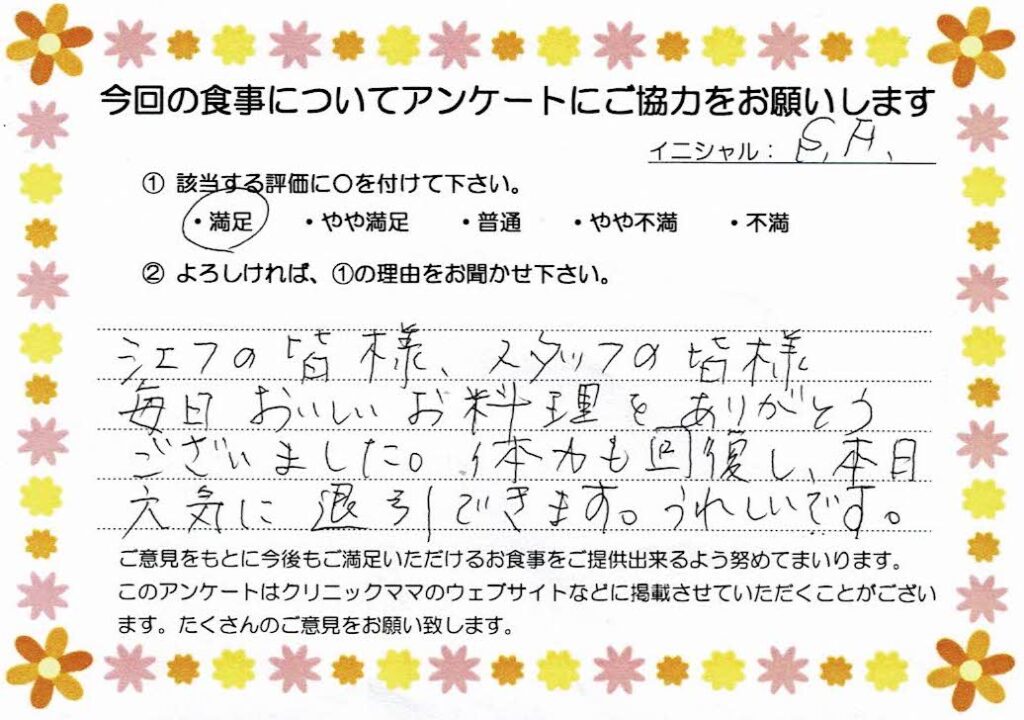 今回の食事についてアンケートにご協力をお願いします
イニシャル： S.H.
① 該当する評価に〇を付けて下さい。
・満足 ・やや満足 ・普通 ・やや不満 ・不満
② よろしければ、①の理由をお聞かせ下さい。
シェフの皆様、スタッフの皆様
毎日おいしいお料理をありがとう
ございました。体力も回復し、本日
元気に退引できます。うれしいです。
ご意見をもとに今後もご満足いただけるお食事をご提供出来るよう努めてまいります。
このアンケートはクリニックママのウェブサイトなどに掲載させていただくことがござい
ます。たくさんのご意見をお願い致します。